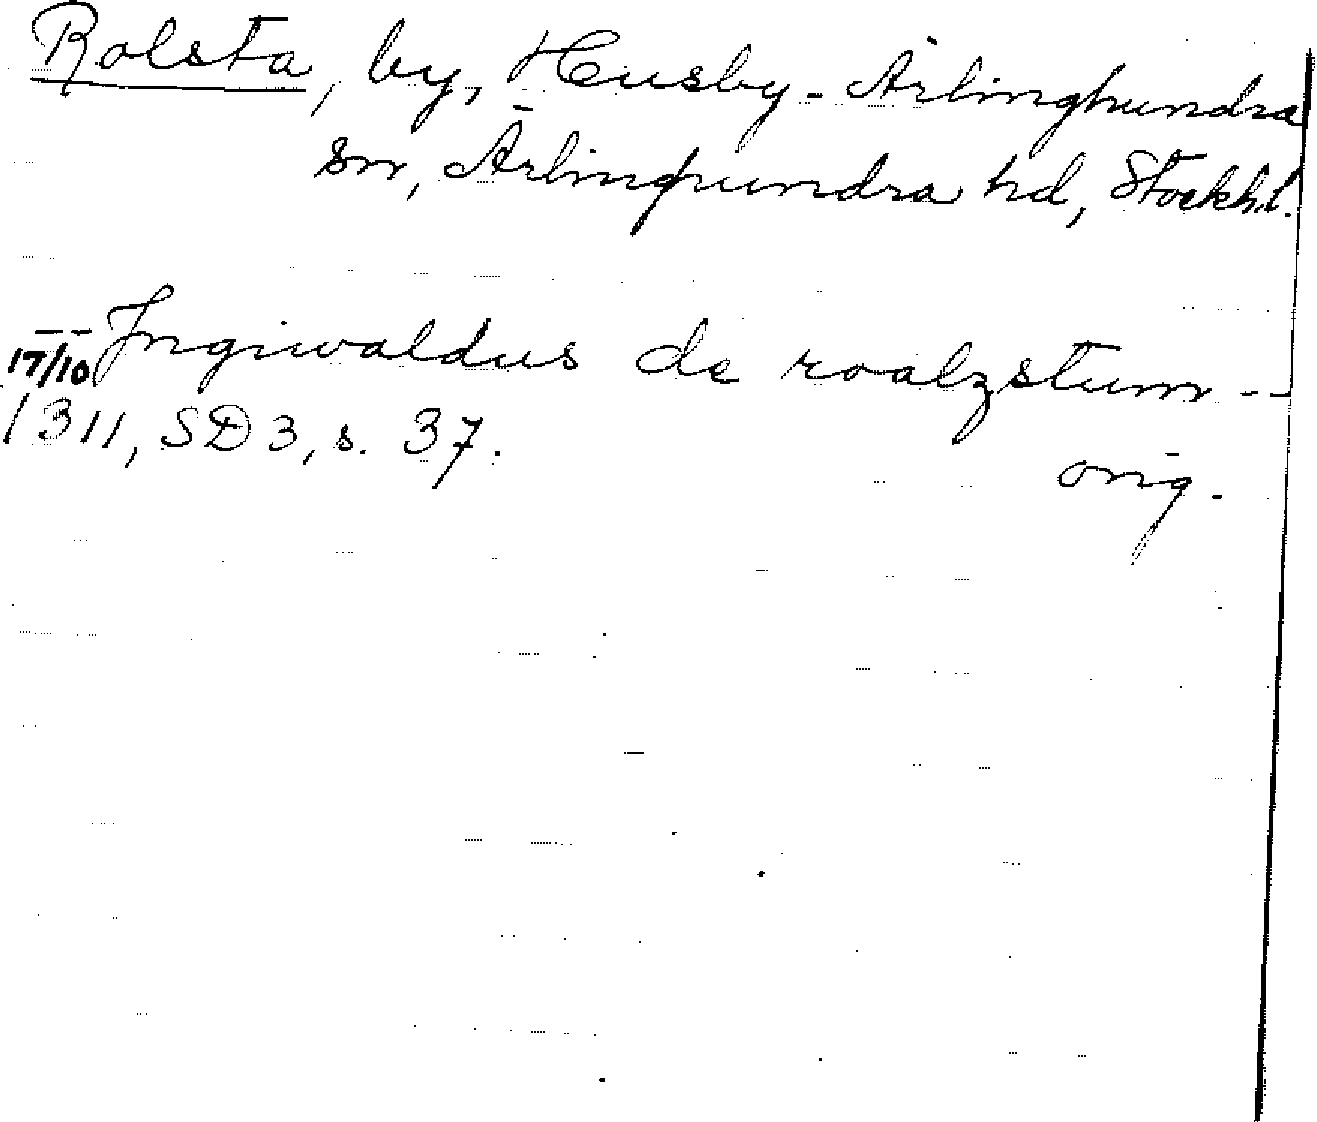 Rolsta, by, Husby-Ärlinghundra
sn, Ärlinghundra hd, Stockh.l.
-- Ingiwaldus de roalzstum --
17/10
1311, SD 3, s. 37.
orig.